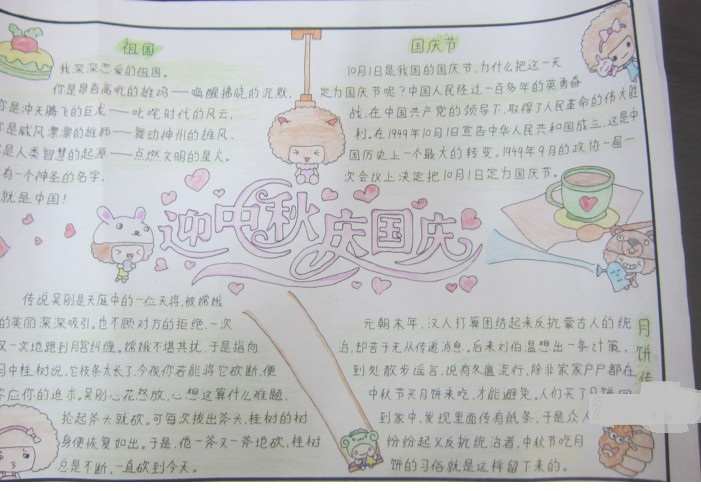 祖国
我深深恋爱的祖国。
你是昂首高吭的雄鸡——唤醒拂晓的沉默,
你是冲天腾飞的巨龙——叱咤时代的风云,
你是威风凛凛的雄狮——舞动神州的雄风,
是人类智慧的起源——点燃文明的星火。
有一个神圣的名字,
就是中国!
国庆节
10月1日是我国的国庆节。为什么把这一天
定为国庆节呢?中国人民经过一百多年的英勇奋
战,在中国共产党的领导下,取得了人民革命的伟大胜
利。在1949年10月1日宣告中华人民共和国成立,这是中
国历史上一个最大的转变。1949年9月的政协一届一
次会议上决定把10月1日定为国庆节。
迎中秋 庆国庆
传说吴刚是天庭中的一位天将,被嫦娥
的美丽深深吸引。也不顾对方的拒绝,一次
又一次地跑到月宫纠缠。嫦娥不堪其扰,于是指向
月中桂树说,它枝条太长了,今夜你若能将它砍断,便
答应你的追求。吴刚心花怒放,心想这算什么难题,
抡起斧头就砍。可每次拔出斧头,桂树的树
身便恢复如出。于是,他一斧又一斧地砍,桂树
总是不断,一直砍到今天。
月饼传
元朝末年,汉人打算团结起来反抗蒙古人的统
治,却苦于无从传递消息。后来刘伯温想出一条计策,
到处散步谣言,说有冬瘟流行,除非家家户户都在
中秋节买月饼来吃,才能避免。人们买了月饼回
到家中,发现里面传有纸条,于是众人
纷纷起义反抗统治者,中秋节吃月
饼的习俗就是这样留下来的。